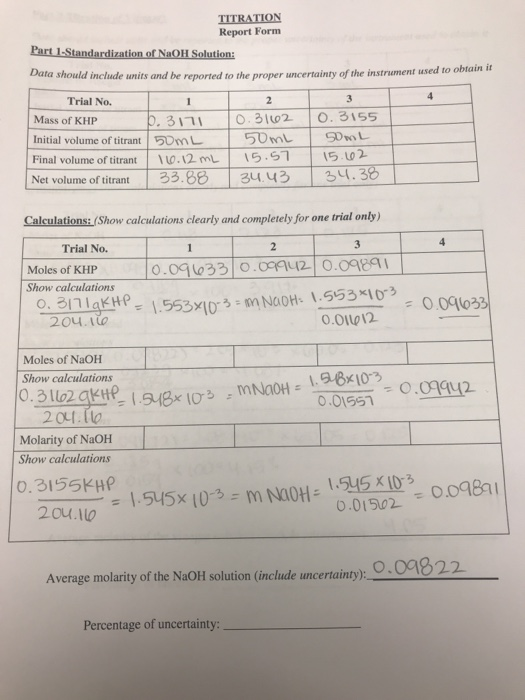 TITRATION
Report Form
Part 1-Standardization of NaOH Solution:
Data should include units and be reported to the proper uncertainty of the instrument used to obtain it
Trial No. 1 2 3 4
Mass of KHP 0.3171 0.3162 0.3155
Initial volume of titrant 50mL 50mL 50mL
Final volume of titrant 16.12 mL 15.57 15.62
Net volume of titrant 33.88 34.43 34.38
Calculations: (Show calculations clearly and completely for one trial only)
Trial No. 1 2 3 4
Moles of KHP 0.09633 0.09942 0.09891
Show calculations
0.3171gKHP = 1.553×10-3 = m NaOH= 1.553×10-3 = 0.09633
204.16 0.01612
Moles of NaOH
Show calculations
0.3162 gKHP = 1.548× 10-3 = mNaOH = 1.548×10-3 = 0.09942
204.16 0.01557
Molarity of NaOH
Show calculations
0.3155KHP = 1.545× 10-3 = m NaOH= 1.545 × 10-3 = 0.09891
204.16 0.01562
Average molarity of the NaOH solution (include uncertainty): 0.09822
Percentage of uncertainty: